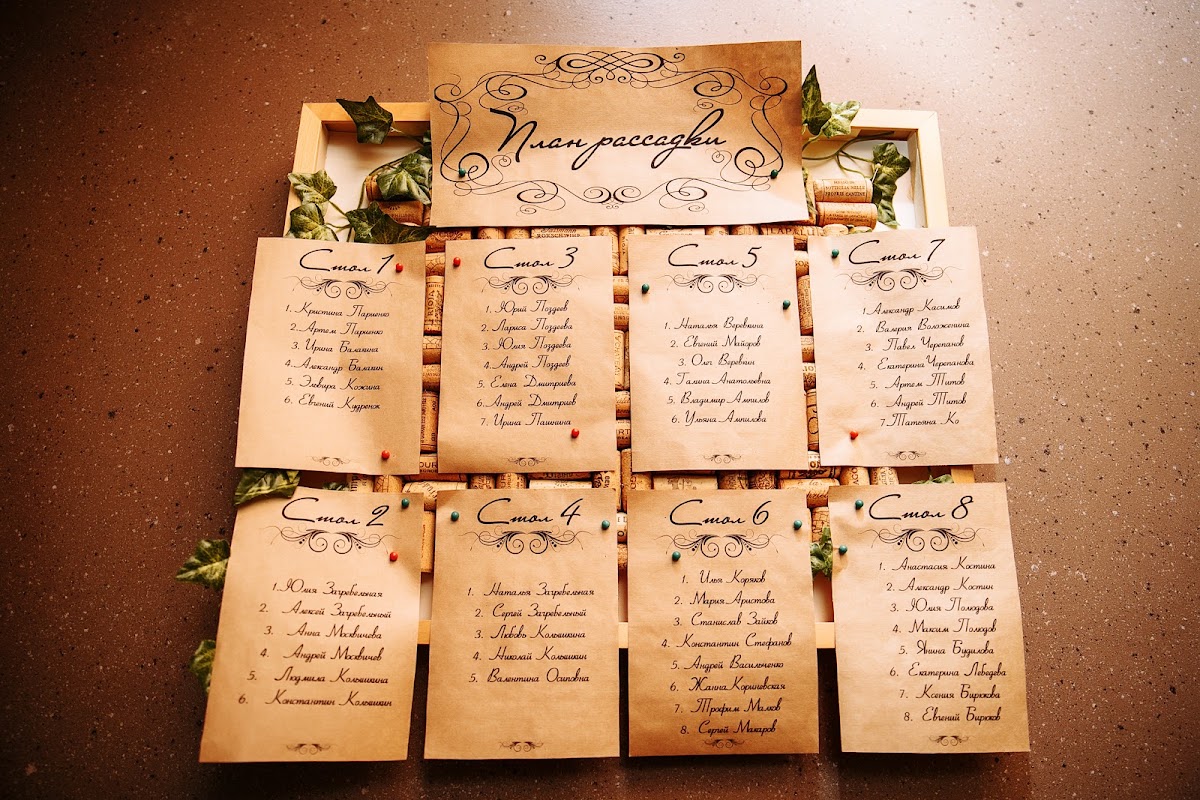 План рассадки
Стол 1
1. Кристина Париенко
2. Артем Париенко
3. Ирина Балакина
4. Александр Балакин
5. Эльвира Кожина
6. Евгений Кудренок
Стол 3
1. Юрий Поздеев
2. Лариса Поздеева
3. Юлия Поздеева
4. Андрей Поздеев
5. Елена Дмитриева
6. Андрей Дмитриев
7. Ирина Пашнина
Стол 5
1. Наталья Веревкина
2. Евгений Майоров
3. Олег Веревкин
4. Галина Анатольевна
5. Владимир Ампилов
6. Ульяна Ампилова
Стол 7
1. Александр Касимов
2. Валерия Воложенина
3. Павел Черепанов
4. Екатерина Черепанова
5. Артем Титов
6. Андрей Титов
7. Татьяна Ко
Стол 2
1. Юлия Загребельная
2. Алексей Загребельный
3. Анна Москвичева
4. Андрей Москвичев
5. Людмила Колышкина
6. Константин Колышкин
Стол 4
1. Наталья Загребельная
2. Сергей Загребельный
3. Любовь Колышкина
4. Николай Колышкин
5. Валентина Осиповна
Стол 6
1. Илья Коряков
2. Мария Аристова
3. Станислав Зайков
4. Константин Стефанов
5. Андрей Васильченко
6. Жанна Кориневская
7. Трофим Малков
8. Сергей Макаров
Стол 8
1. Анастасия Костина
2. Александр Костин
3. Юлия Полюдова
4. Максим Полюдов
5. Янина Будилова
6. Екатерина Лебедева
7. Ксения Бирюкова
8. Евгений Бирюков